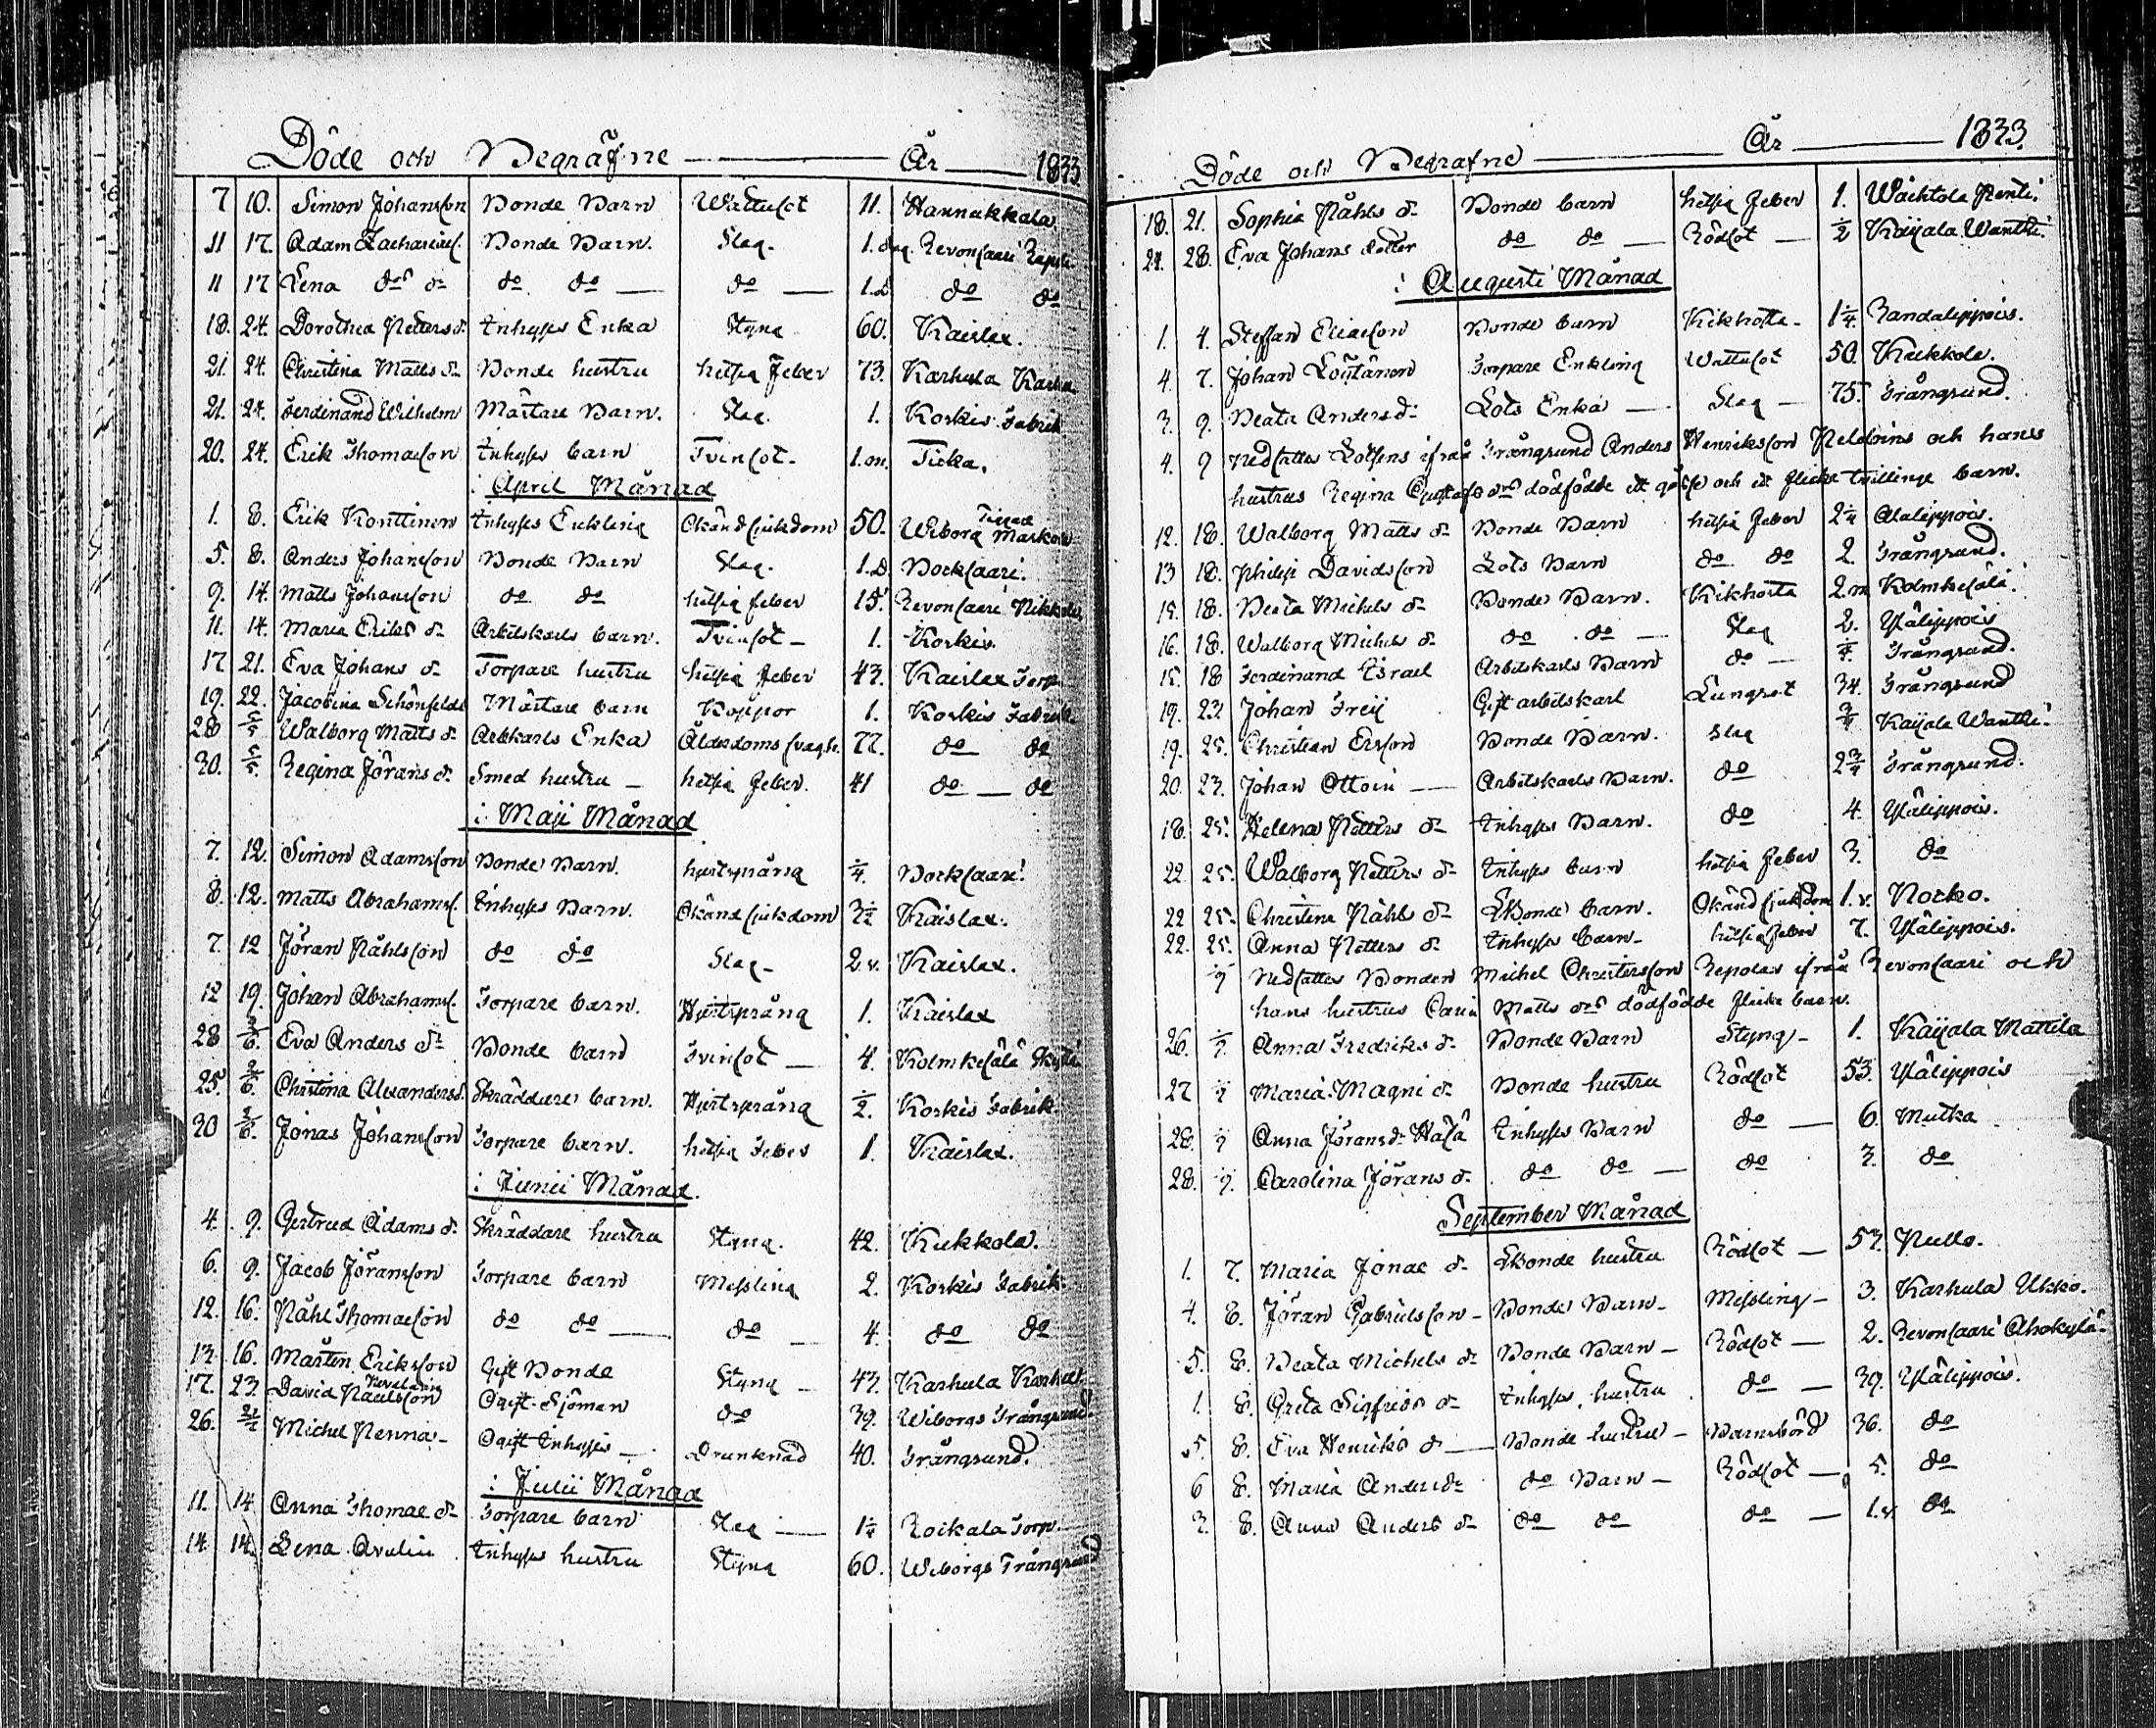 Döde och Begräfne ——— År — 1833
7 10. Simon Johansson Bonde Barn Wattusot 11. Hannukkala
11 17. Adam Zachariaes. Bonde Barn. Slag. 1.dag Revonsaari
11 17 Lena do's dr do do — do — 1.d do do
18. 24. Dorothea Petters dr Inhyses Enka Styng 60. Kaislax.
21. 24. Christina Matts dr Bonde hustru hetsig feber 73. Karhula
21. 24. Ferdinand Wilhelm Mästare Barn. Slag. 1. Korkis Fabrik
20. 24. Erik Thomasson Inhyses barn Tvinsot. 1. on. Ticka.
: April Månad
1. 8. Erik Konttinen Inhyses Enkling Okänd sjukdom 50. Wiborg
5. 8. Anders Johansson Bonde Barn Slag. 1.d. Borksaari.
9. 14. Matts Johansson do do hetsig feber 15. Revonsaari
11. 14. Maria Eriks dr Arbetskarls barn. Tvinsot — 1. Korkis.
17 21. Eva Johans dr Torpare hustru hetsig feber 43. Kaislax Torp
19. 22. Jacobina Schönfeldt Mästare barn Koppor 1. Korkis Fabrik
28 5/5 Walborg Matts dr Arbkarls Enka Ålderdoms svagh. 77. do do
30. 5/5. Regina Jörans dr Smed hustru — hetsig feber. 41 do — do
: Maji Månad
7. 12. Simon Adamsson Bonde Barn. hjertsprång 1/4. Borksaari.
8. 12. Matts Abrahams. Inhyses Barn. Okänd sjukdom Kaislax.
7. 12 Jöran Påhlsson do do Slag — 2.v. Kaislax.
12 19. Johan Abrahams. Torpare barn. Hjertsprång 1. Kaislax
28 2/6. Eva Anders dr Bonde barn Tvinsot — 4. Kolmkesälä
25. 2/6. Christina Alexandersd. Skräddares barn. Hjertsprång 1/2. Korkis Fabrik.
30 2/6. Jonas Johansson Torpare barn. hetsig feber 1. Kaislax.
: Junii Månad.
4. 9. Gertrud Adams dr Skräddare hustru Styng. 42. Kukkola.
6. 9. Jacob Jöransson Torpare barn Messling 2. Korkis Fabrik.
12. 16. Påhl Thomasson do do — do — 4. do do
13. 16. Mårten Eriksson Gift Bonde Styng — 43. Karhula
17. 23. David Paulsson Ogift Sjöman do 39. Wiborgs Trångsund.
26. Michel Nenna — Ogift Inhyses — Drunknad 40. Trångsund.
: Julii Månad
11. 14. Anna Thomae dr Torpare barn Slag — 1 1/4 Roikala Torp.
14. 14. Lena Avelin Inhyses hustru Styng 60. Wiborgs Trångsund
Döde och Begrafne ——— År — 1833.
18. 21. Sophia Påhls dr Bonde barn hetsig feber 1. Wächtola Pentti.
24. 28. Eva Johans dotter do do — Rödsot — 1/2 Kaijala Wantti.
: Augusti Månad
1. 4. Steffan Ericsson Bonde barn Kikhosta — 1 1/4. Randalippois.
4. 7. Johan Löytänen Torpare Enkling Wattusot 50. Kukkola.
3. 9. Beata Anders dr Lots Enka — Slag — 75. Trångsund.
4. 9 Nedsattes Lotsens ifrån Trångsund Anders Henriksson Peldoins och hans
hustrus Regina Gustafs drs dödfödde ett gosse och ett flicke twillinge barn.
12. 18. Walborg Matts dr Bonde Barn hetsig feber 2 1/4 Alalippois.
13 18. Philip Davidsson Lots Barn do do 2. Trångsund.
15. 18. Beata Michels dr Bonde Barn. Kikhosta 2 m Kolmkesälä.
16. 18. Walborg Michels dr do do — Slag 2. Ylälippois
15. 18 Ferdinand Israel Arbetskarls Barn do — Trångsund.
19. 23. Johan Frey Gift arbetskarl Lungsot 34. Trångsund
19. 25. Christian Ersson Bonde Barn. Slag 3/4 Kaijala Wantti.
20. 23. Johan Ottoin — Arbetskarls Barn. do 2 3/4 Trångsund.
18. 25. Helena Petters dr Inhyses Barn. do 4. Ylälippois.
22. 25. Walborg Petters dr Inhyses barn hetsig feber 3. do
22 25. Christina Påhls dr Bonde barn. Okänd sjukdom 1.v. Norko.
22. 25. Anna Petters dr Inhyses barn — hetsig feber 7. Ylälippois.
1/9 Nedsattes Bonden Michel Christersson Repolas ifrån Revonsaari och
hans hustrus Caria Matts drs dödfödde flicke barn.
26. 1/9. Anna Fredriks dr Bonde Barn Styng — 1. Kaijala Mattila
27 1/9 Maria Magni dr Bonde hustru Rödsot 53. Ylälippois
28. 1/9 Anna Jörans dr Inhyses Barn do — 6. Mutka
28. 1/9. Carolina Jörans dr do do — do 3. do
September Månad
1. 7. Maria Jonae dr Bonde hustru Rödsot — 57. Pullo.
4. 8. Jöran Gabrielsson — Bonde Barn — Messling — 3. Karhula Ukko.
5. 8. Beata Michels dr Bonde Barn — Rödsot — 2. Revonsaari Ahokylä.
1. 8. Greta Sigfrids dr Inhyses hustru do — 39. Ylälippois.
5. 8. Eva Henriks dr — Bonde hustru — Barnsbörd 36. do
6 8. Maria Anders dr do Barn — Rödsot — 5. do
3. 8. Anna Anders dr do do do — 1.v. do